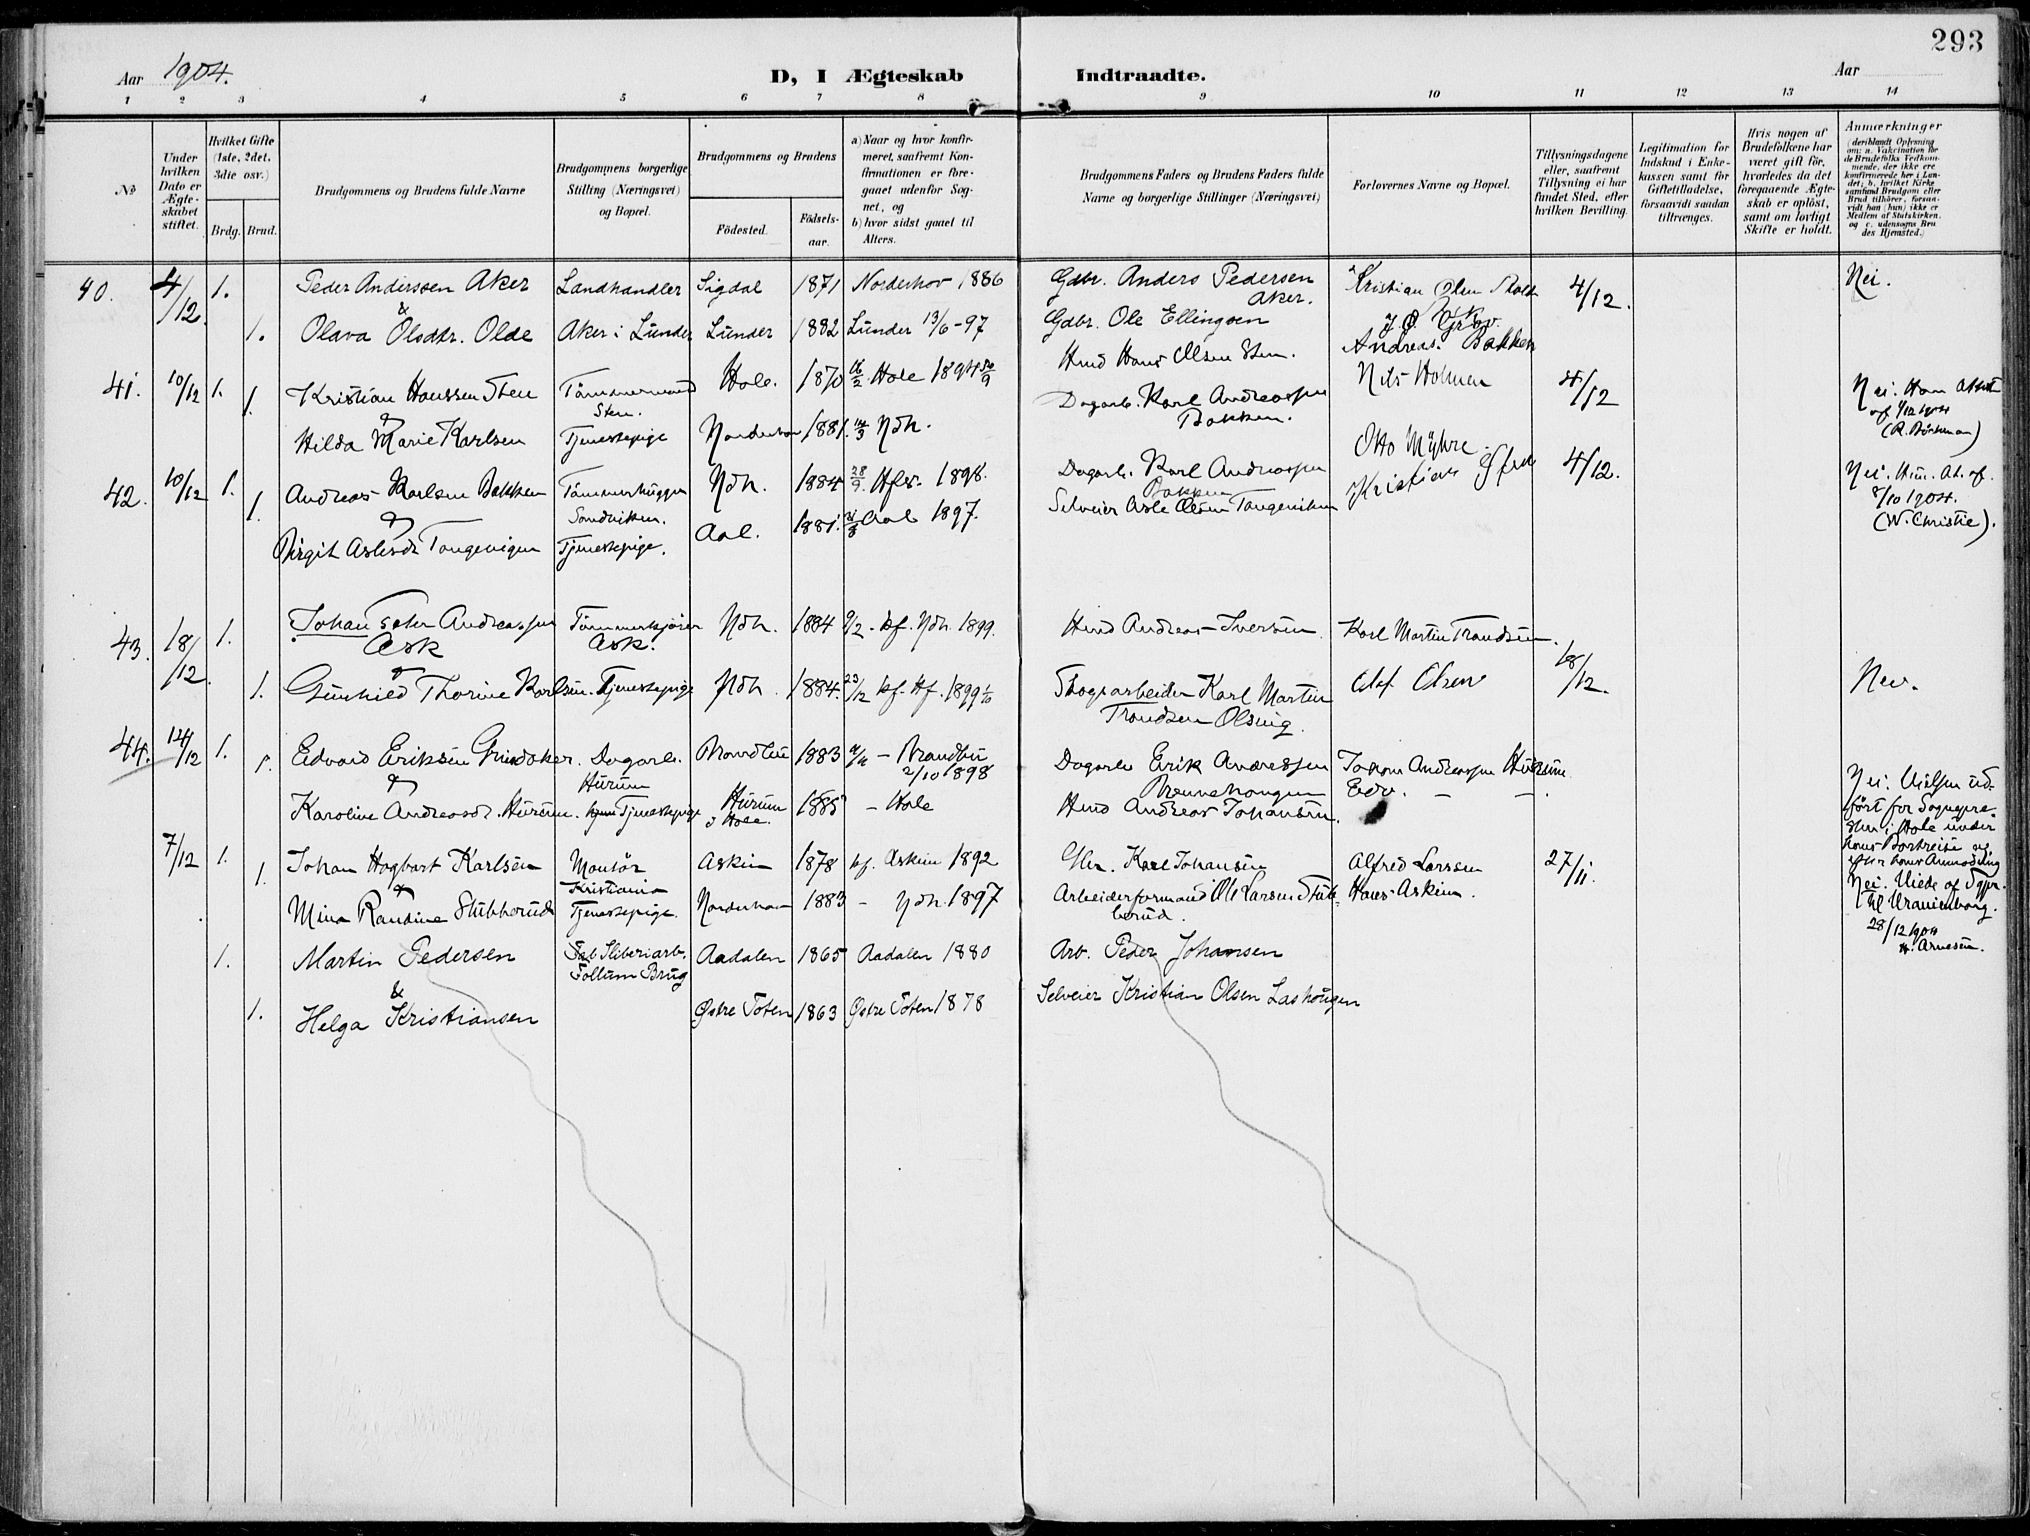 293
Aar 1904.
D, I Ægteskab Indtraadte.
Aar
1 2 3 4 5 6 7 8 9 10 11 12 13 14
No
Under hvilken Dato er Ægteskabet stiftet.
Hvilket Gifte (1ste, 2det, 3die osv.)
Brdg. Brud.
Brudgommens og Brudens fulde Navne
Brudgommens borgerlige Stilling (Næringsvei) og Bopæl.
Brudgommens og Brudens
Fødested.
Fødselsaar.
a) Naar og hvor konfirmeret, saafremt Konfirmationen er foregaaet udenfor Sognet, og
b) hvor sidst gaaet til Alters.
Brudgommens Faders og Brudens Faders fulde Navne og borgerlige Stillinger (Næringsvei)
Forlovernes Navne og Bopæl.
Tillysningsdagene eller, saafremt Tillysning ei har fundet Sted, efter hvilken Bevilling.
Legitimation for Indskud i Enkekassen samt for Giftetilladelse, forsaavidt saadan tiltrænges.
Hvis nogen af Brudefolkene har været gift før, hvorledes da det foregaaende Ægteskab er opløst, samt om lovligt Skifte er holdt.
Anmærkninger
(deriblandt Oplysning om: a. Vakcination for de Brudefolks Vedkommende, der ikke ere konfirmerede her i Landet; b. hvilket Kirkesamfund Brudgom eller Brud tilhører, forsaavidt han (hun) ikke er Medlem af Statskirken, og c. udensogns Brudes Hjemsted.)
40. 4/12. 1. Peder Anderssen Aker Landhandler Sigdal 1871 Norderhov 1886 Gdbr. Anders Pedersen Aker. Kristian Olsen 4/12. Nei.
&
1. Olava Olsdtr. Olde Aker i Lunder Lunder 1882 Lunder 13/6-97 Gdbr. Ole Ellingsen
41. 10/12 1. Kristian Hanssen Sten Tømmermand Sten. Hole. 1870 Hole 1894 Hmd Hans Olsen Sten. Andreas Bakken 4/12 Nei. Ham Attest af 1/12 1904
&
1. Hilda Marie Karlsen Tjenestepige Norderhov 1881. Ndh. Dagarb. Karl Andreassen Bakken. Nils Holmen
42. 10/12 1. Andreas Karlsen Bakken Tømmerhugger Sandviken. Ndh. 1884 28/9. Hfos. 1898. Dagarb. Karl Andreassen Bakken Otto Myhre. 4/12. Nei. At. af 8/10 1904. (W. Christie).
&
1. Birgit Aslesdt Tangevigen Tjenestepige. Aal. 1881. Aal 1897. Selveier Asle Olsen Tangeviken Kristian
43. 18/12. 1. Johan Andreassen Ask Tømmerkjører Ask. Ndh. 1884 kf. Ndh. 1899. Hmd Andreas Iversen Karl Martin Trondsen. 18/12. Nei.
&
1. Gunhild Thorine Karlsen. Tjenestepige Ndh. 1884. 23/12 kf. Hf. 1899 Skogsarbeider Karl Martin Trondsen Olsing. Olsen
44. 14/12 1. Edvard Eriksen Grindaker. Dagarb. Hurum Brandbu 1883 Brandbu 2/10 1898 Dagarb Erik Andressen Johan Andreassen Hurum
&
1. Karoline Andreasd. Hurum. Tjenestepige Hurum i Hole. 1885 - Hole Hmd Andreas Johansen. Edv. - -.
Nei. Vielsen udført for Sognepresten i Hole under hans Bortreise og efter hans Anmodning
7/12 1. Johan Hagbart Karlsen Montør Kristiania Askim 1878 kf. Askim 1892 Karl Johansen Alfred Larsen 27/11. Nei.
&
1. Mina Randine Stubberud Tjenestepige. Norderhov 1883 - Ndh. 1897 Arbeiderformand Ole Larsen Stubberud. Hans Askim.
Uranienborg. 28/12 1904 H. Arnesen.
1. Martin Pedersen Sliberiarb. Follum Brug Aadalen 1865 Aadalen 1880 Arb. Peder Johansen
&
1. Helga Kristiansen Østre Toten 1863 Østre Toten 1878 Selveier Kristian Olsen Lashaugen